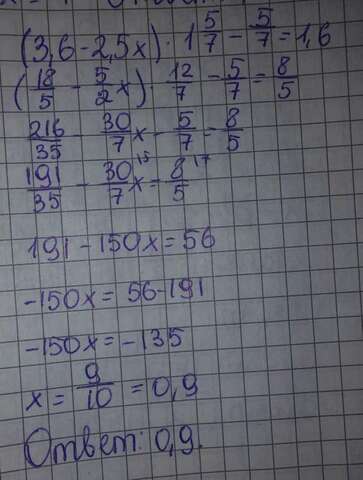 (3,6-2,5x)·1 5/7 - 5/7 = 1,6
(18/5 - 5/2 x)·12/7 - 5/7 = 8/5
216/35 - 30/7 x - 5/7 = 8/5
191/35 - 30/7 x^15 = 8/5^17
191-150x=56
-150x=56-191
-150x=-135
x= 9/10 =0,9
Ответ: 0,9.